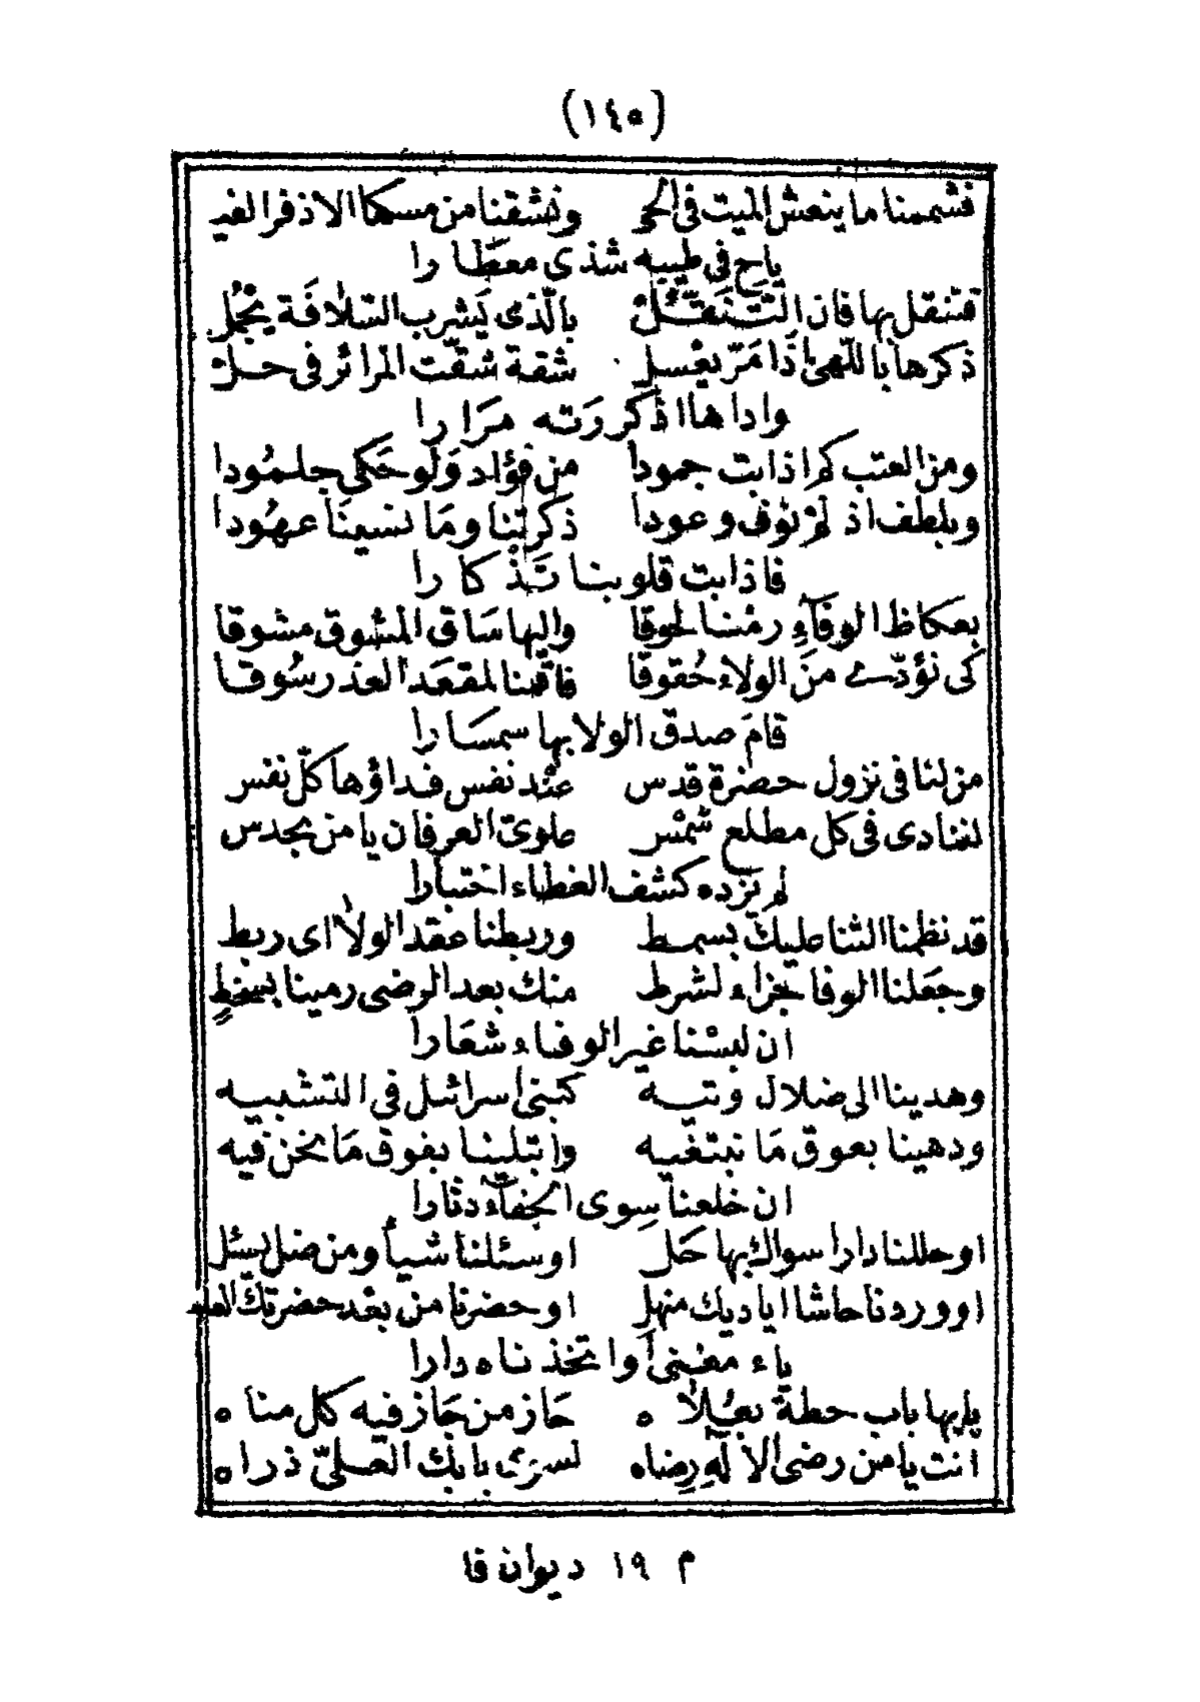 (١٤٥)
فشممنا ما ينعش الميت في الحي ونشقنا من مسكها الاذفر الغيـ
ياح في طيبه شذى معطارا
فتنقل بها فان التَّنَقُّل بالّذى يَشرب السّلافَة يَجْمُل
ذكرها باللّهىٰ اذَا مَرّ يعْسل شقة شقّت المرائر في حل
واداها اذكرَته مرَارا
ومن العتب كم اذابت جمودا من فؤاد وَلَو حَكى جلمُودا
وبلطف اذ لم نوف وعودا ذكرتنا ومَا نسينَا عهُودا
فاذابت قلوبنا تَذْكارا
بعكاظ الوفآءِ رمْنا لحوقا واليها سَاق المشوق مشوقا
كى نؤدّى منَ الولاء حُقوقا فاقمنا لمقعَد العذر سُوقا
قامَ صدق الولا بها سمسَارا
من لنا فى نزول حضرة قدس عنْد نفس فداؤها كلّ نفس
لننادى فى كل مطلع شمْس طوىّ العرفان يا من بحدس
لم تزده كشف الغطاء اختبارا
قد نظمنا الثنا عليكَ بسمط وربطنا عقد الولاٰ اى ربط
وجعَلنا الوفا جزاء لشرط منك بعد الرضى رمينا بسخطٍ
ان لبسْنا غير الوفاء شعَارا
وهدينا الى ضلال وتيه كبنى اسرائيل في التشبيه
ودهينا بعوق مَا نبتغيه وابتلينا بفوق مَا نحن فيه
ان خلعنا سِوى الجفآء دثارا
او حللنا دارا سواك بها حَل او سئلنا شيأ ومن ضل يسئل
او وردنا حاشا اياديك منهل او حضرنا من بعْد حضرتكَ العليـ
ياء مغنىً او اتخذناه دارا
يا بها باب حطة بعُلاٰه حَاز من جَاز فيه كل مناه
انت يا من رضى الالٰه رِضاه لسوى بابك العَلىّ ذراه
م ١٩ ديوان فا